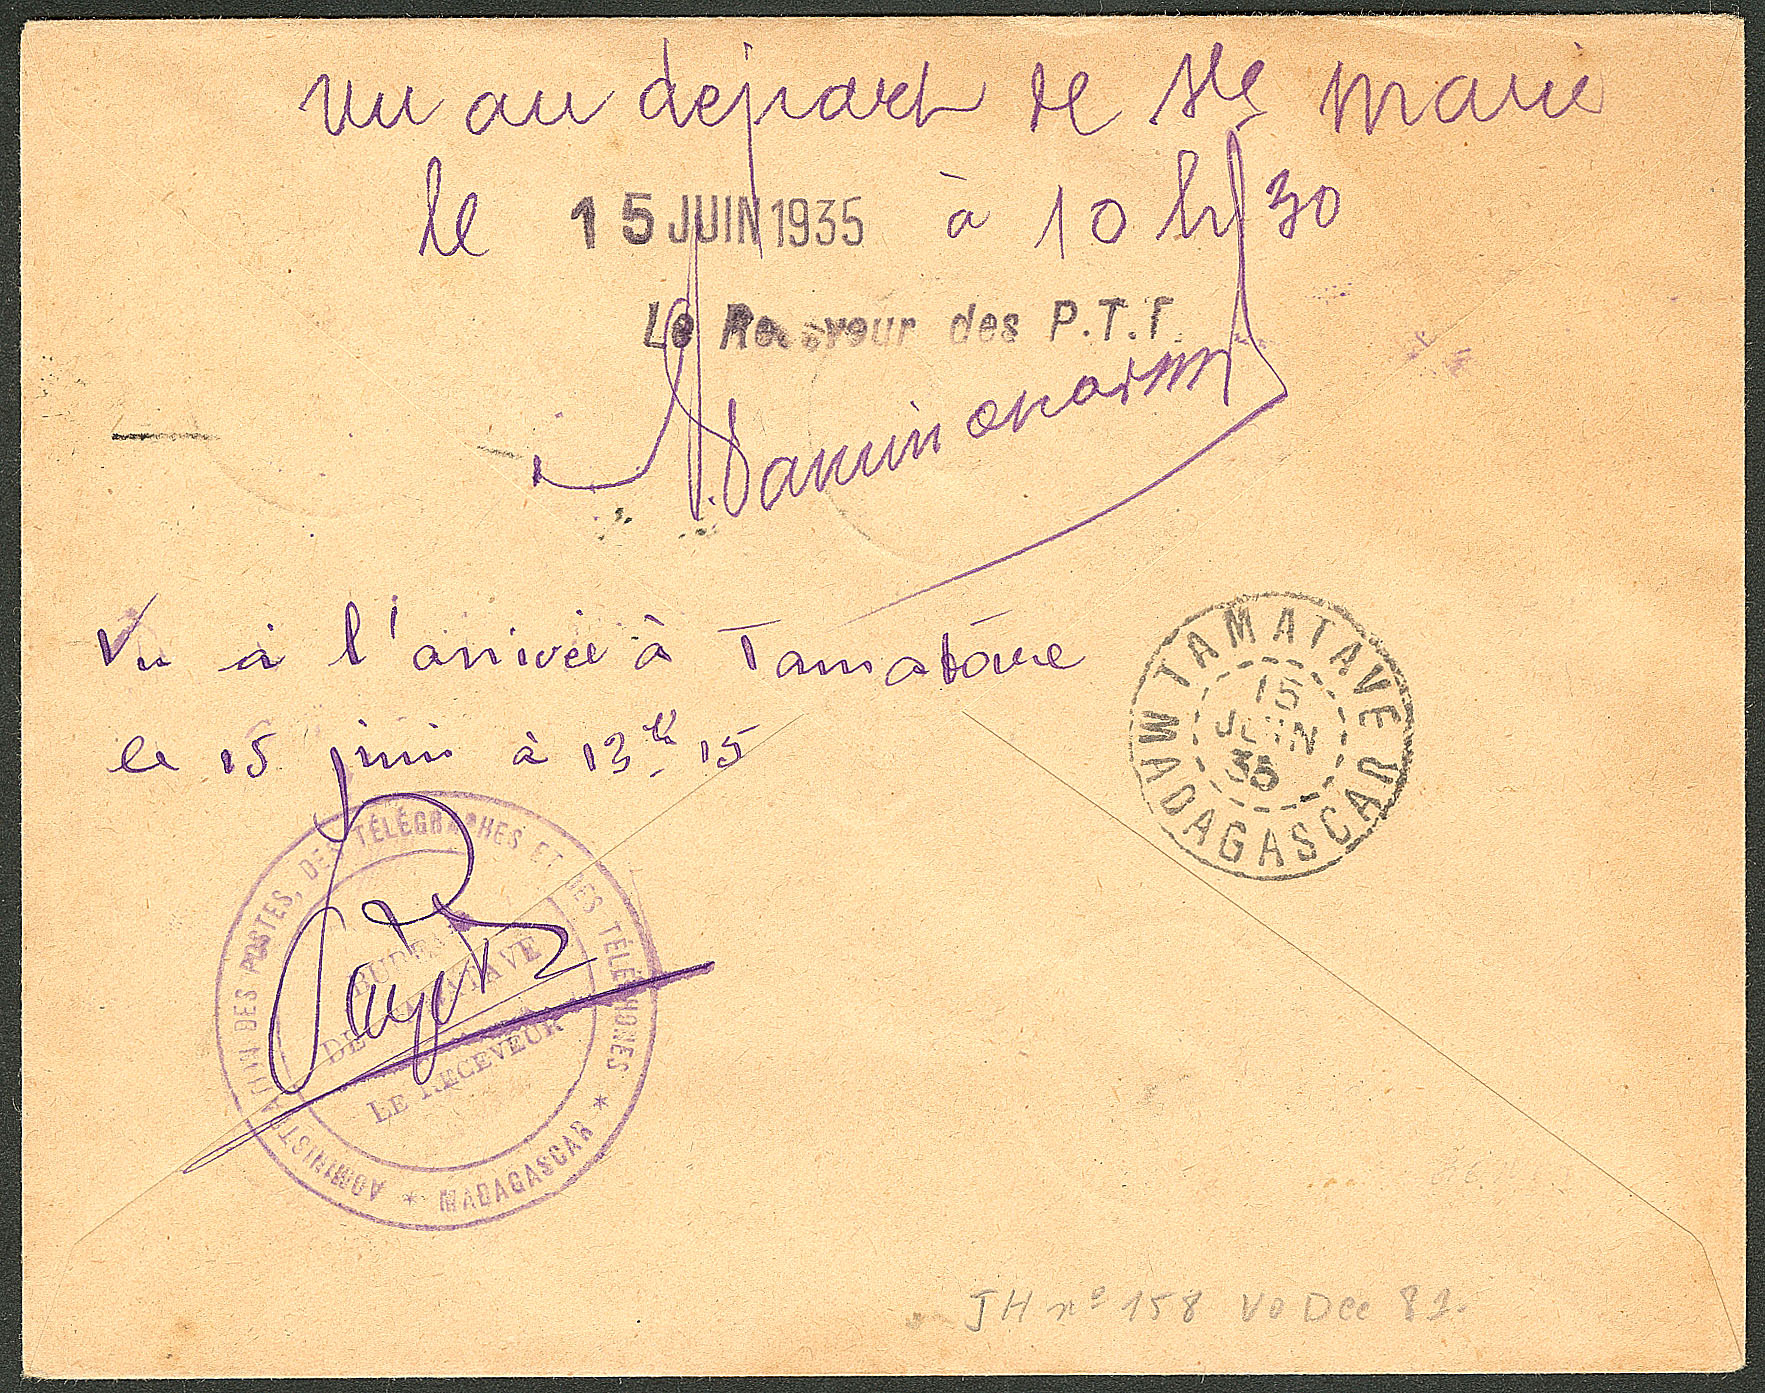 Vu au départ de Ste Marie
le 15 JUIN 1935 à 10 h 30
Le Receveur des P.T.T.
Vu à l'arrivée à Tamatave
le 15 juin à 13 h 15
TAMATAVE
15
JUIN
35
MADAGASCAR
ADMINISTRATION DES POSTES, DES TÉLÉGRAPHES ET DES TÉLÉPHONES
* MADAGASCAR *
BUREAU
DE TAMATAVE
LE RECEVEUR
JH nº 158 Vo Dec 82.